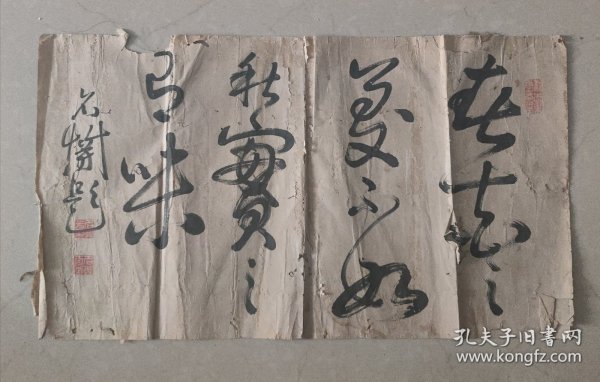 春花之
美不如
秋實之
有味
題
孔夫子旧書网
www.kongfz.com